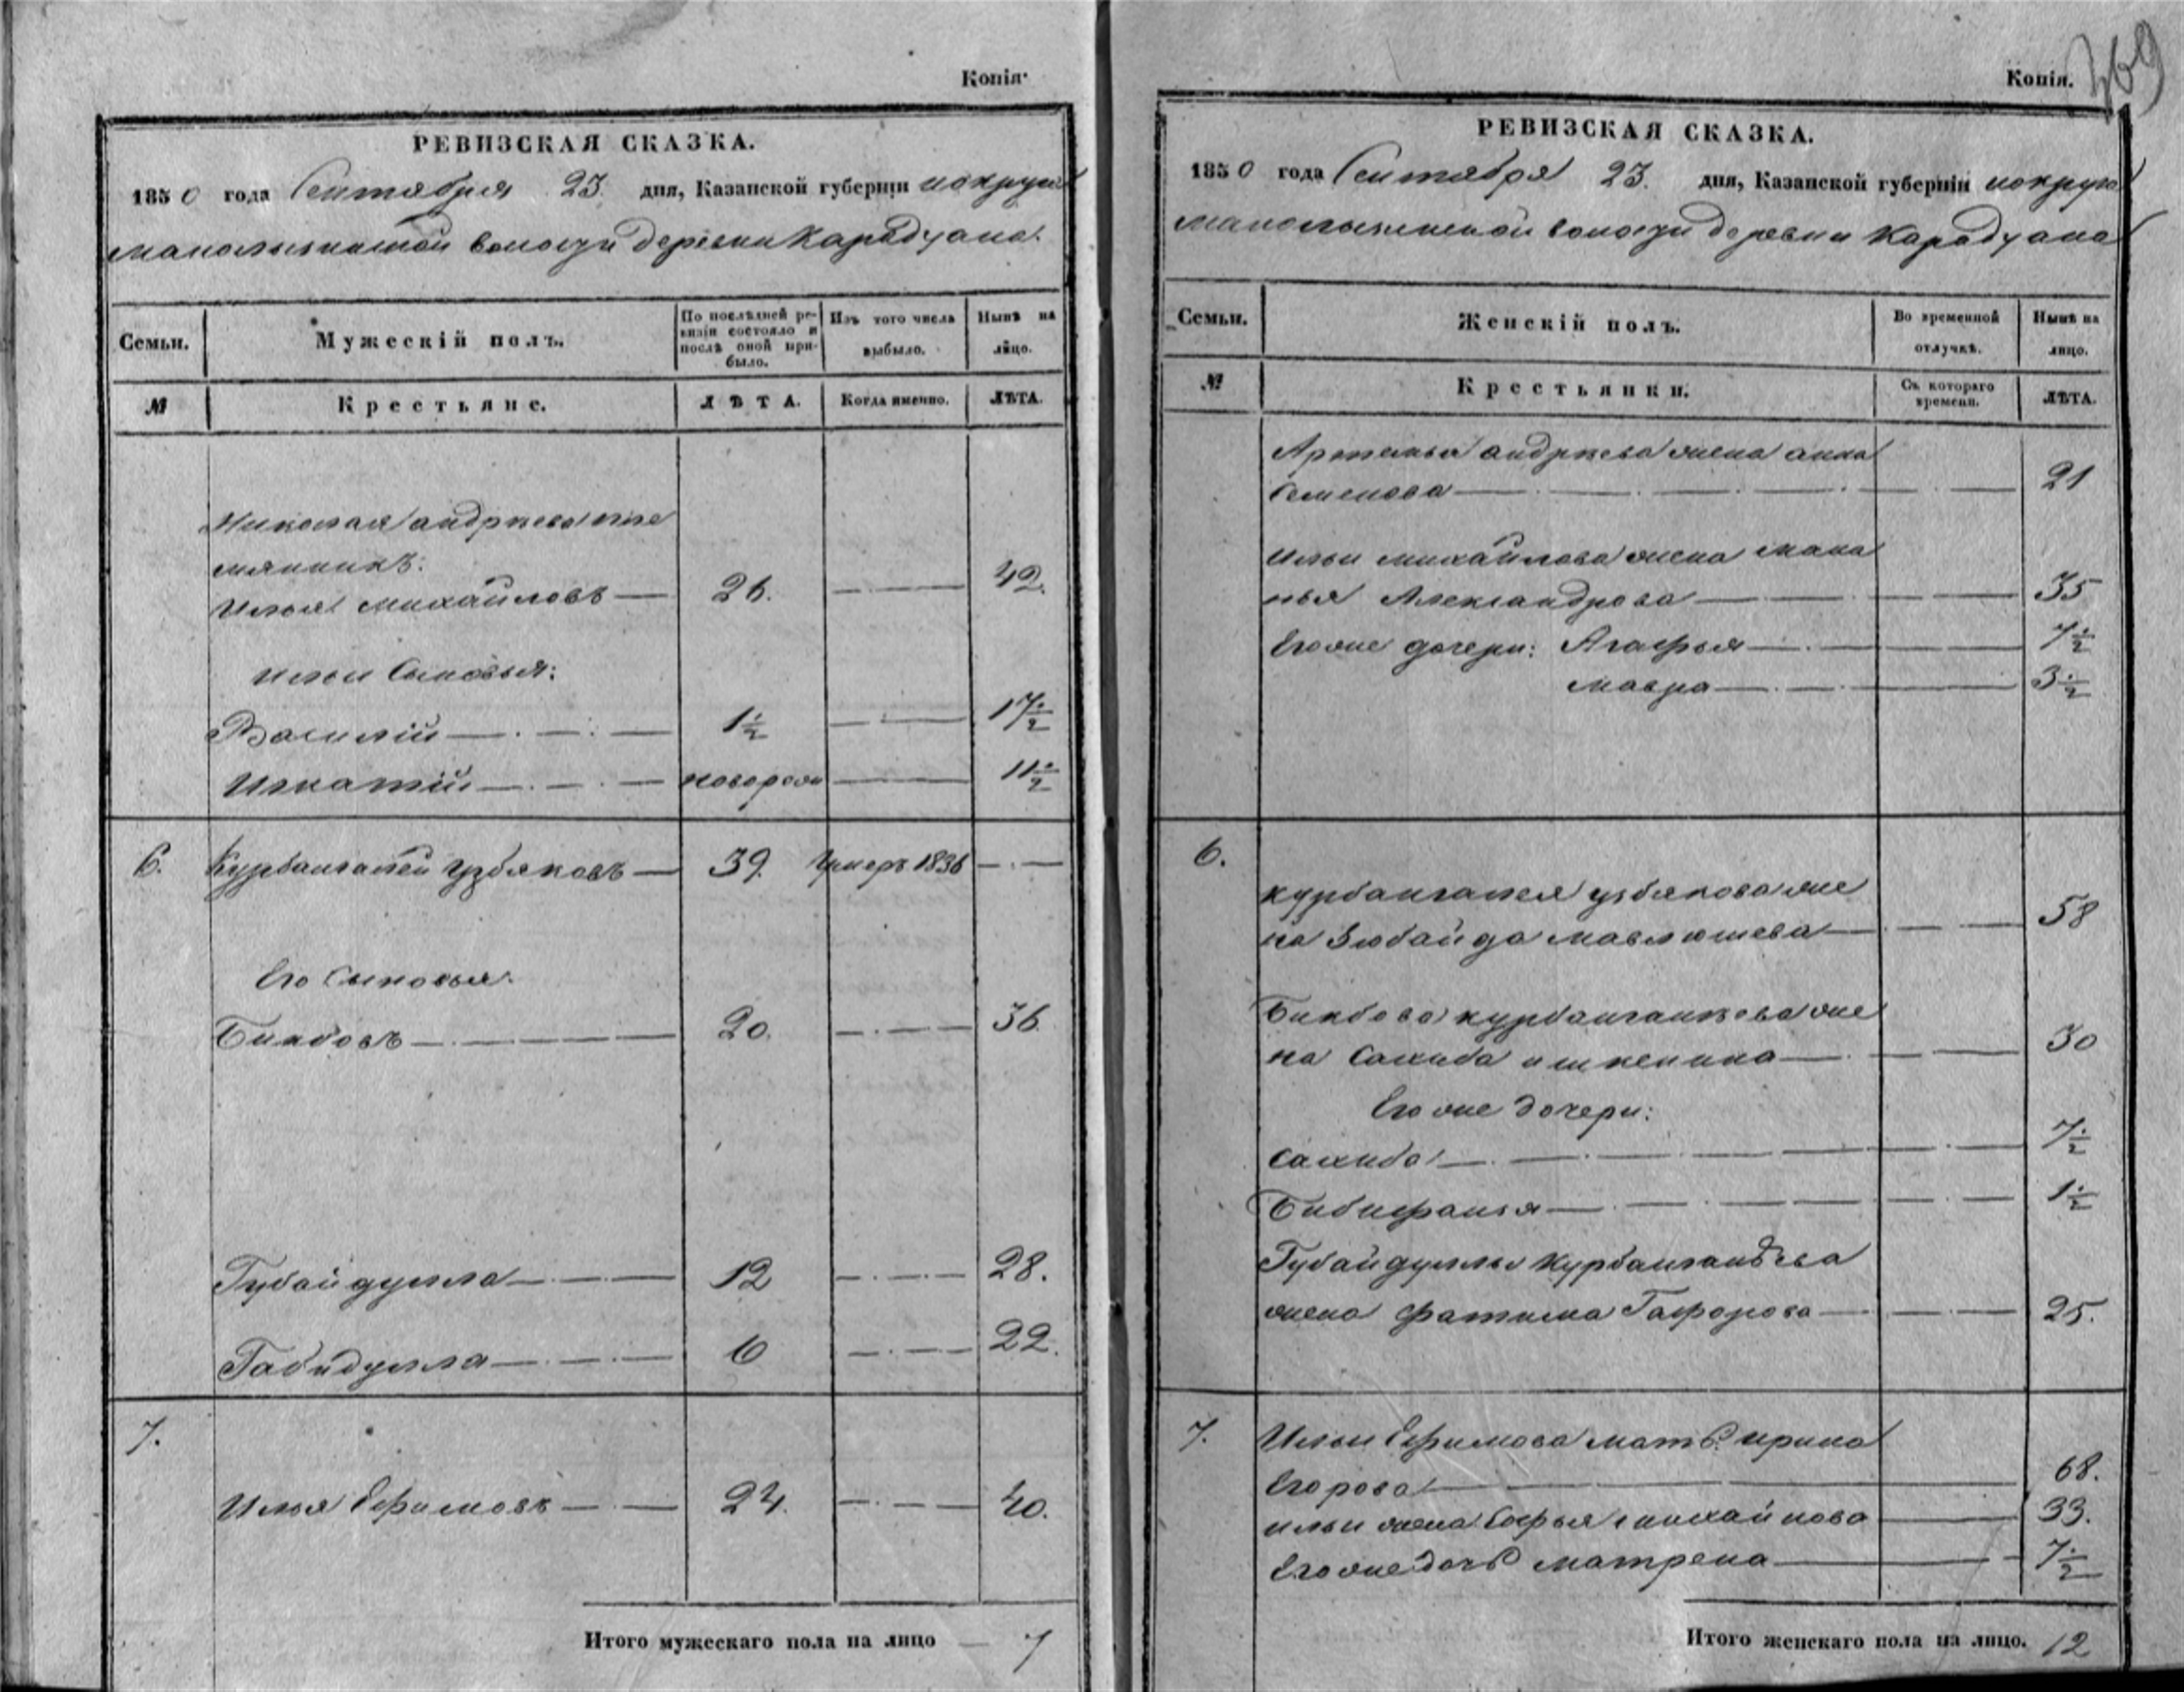 Копія.
РЕВИЗСКАЯ СКАЗКА.
1850 года Сентября 23 дня, Казанской губерніи
волости деревни Карадуана
Семьи.
Мужескій полъ.
По послѣдней ревизіи состояло и послѣ оной прибыло.
Изъ того числа выбыло.
Нынѣ на лицо.
№
Крестьяне.
ЛѢТА.
Когда именно.
ЛѢТА.
Николая андреева пле
мянникъ:
Илья михайловъ 26. 42.
Ильи Сыновья:
Василій 1½ 17½
Игнатій новорож 11½
6. Курбангалей Узбяковъ 39. Умеръ 1836
Его Сыновья:
Бикбовъ 20. 36
Губайдулла 12 28.
Габидулла 6 22.
7.
Илья Ефимовъ 24. 40.
Итого мужескаго пола на лицо 7
369
Копія.
РЕВИЗСКАЯ СКАЗКА.
1850 года Сентября 23. дня, Казанской губерніи
волости деревни Карадуана
Семьи.
Женскій полъ.
Во временной отлучкѣ.
Нынѣ на лицо.
№
Крестьянки.
Съ котораго времени.
ЛѢТА.
Артемья андреева жена анна
Семенова 21
Ильи михайлова жена мала
нья Александрова 35
Его же дочери: Агафья 7½
мавра 3½
6.
курбангалея узбякова же
на Зюбайда мавлюшева 58
Бикбова курбангалеева же
на Сахиба ишкенина 30
Его же дочери:
Сахиба 7½
Бибифанья 1½
Губайдуллы Курбангалѣева
жена фатима Гафорова 25.
7. Ильи Ефимова мать ирина
Егорова 68.
ильи жена Софья михайлова 33.
Его же дочь матрена 7½
Итого женскаго пола на лицо. 12